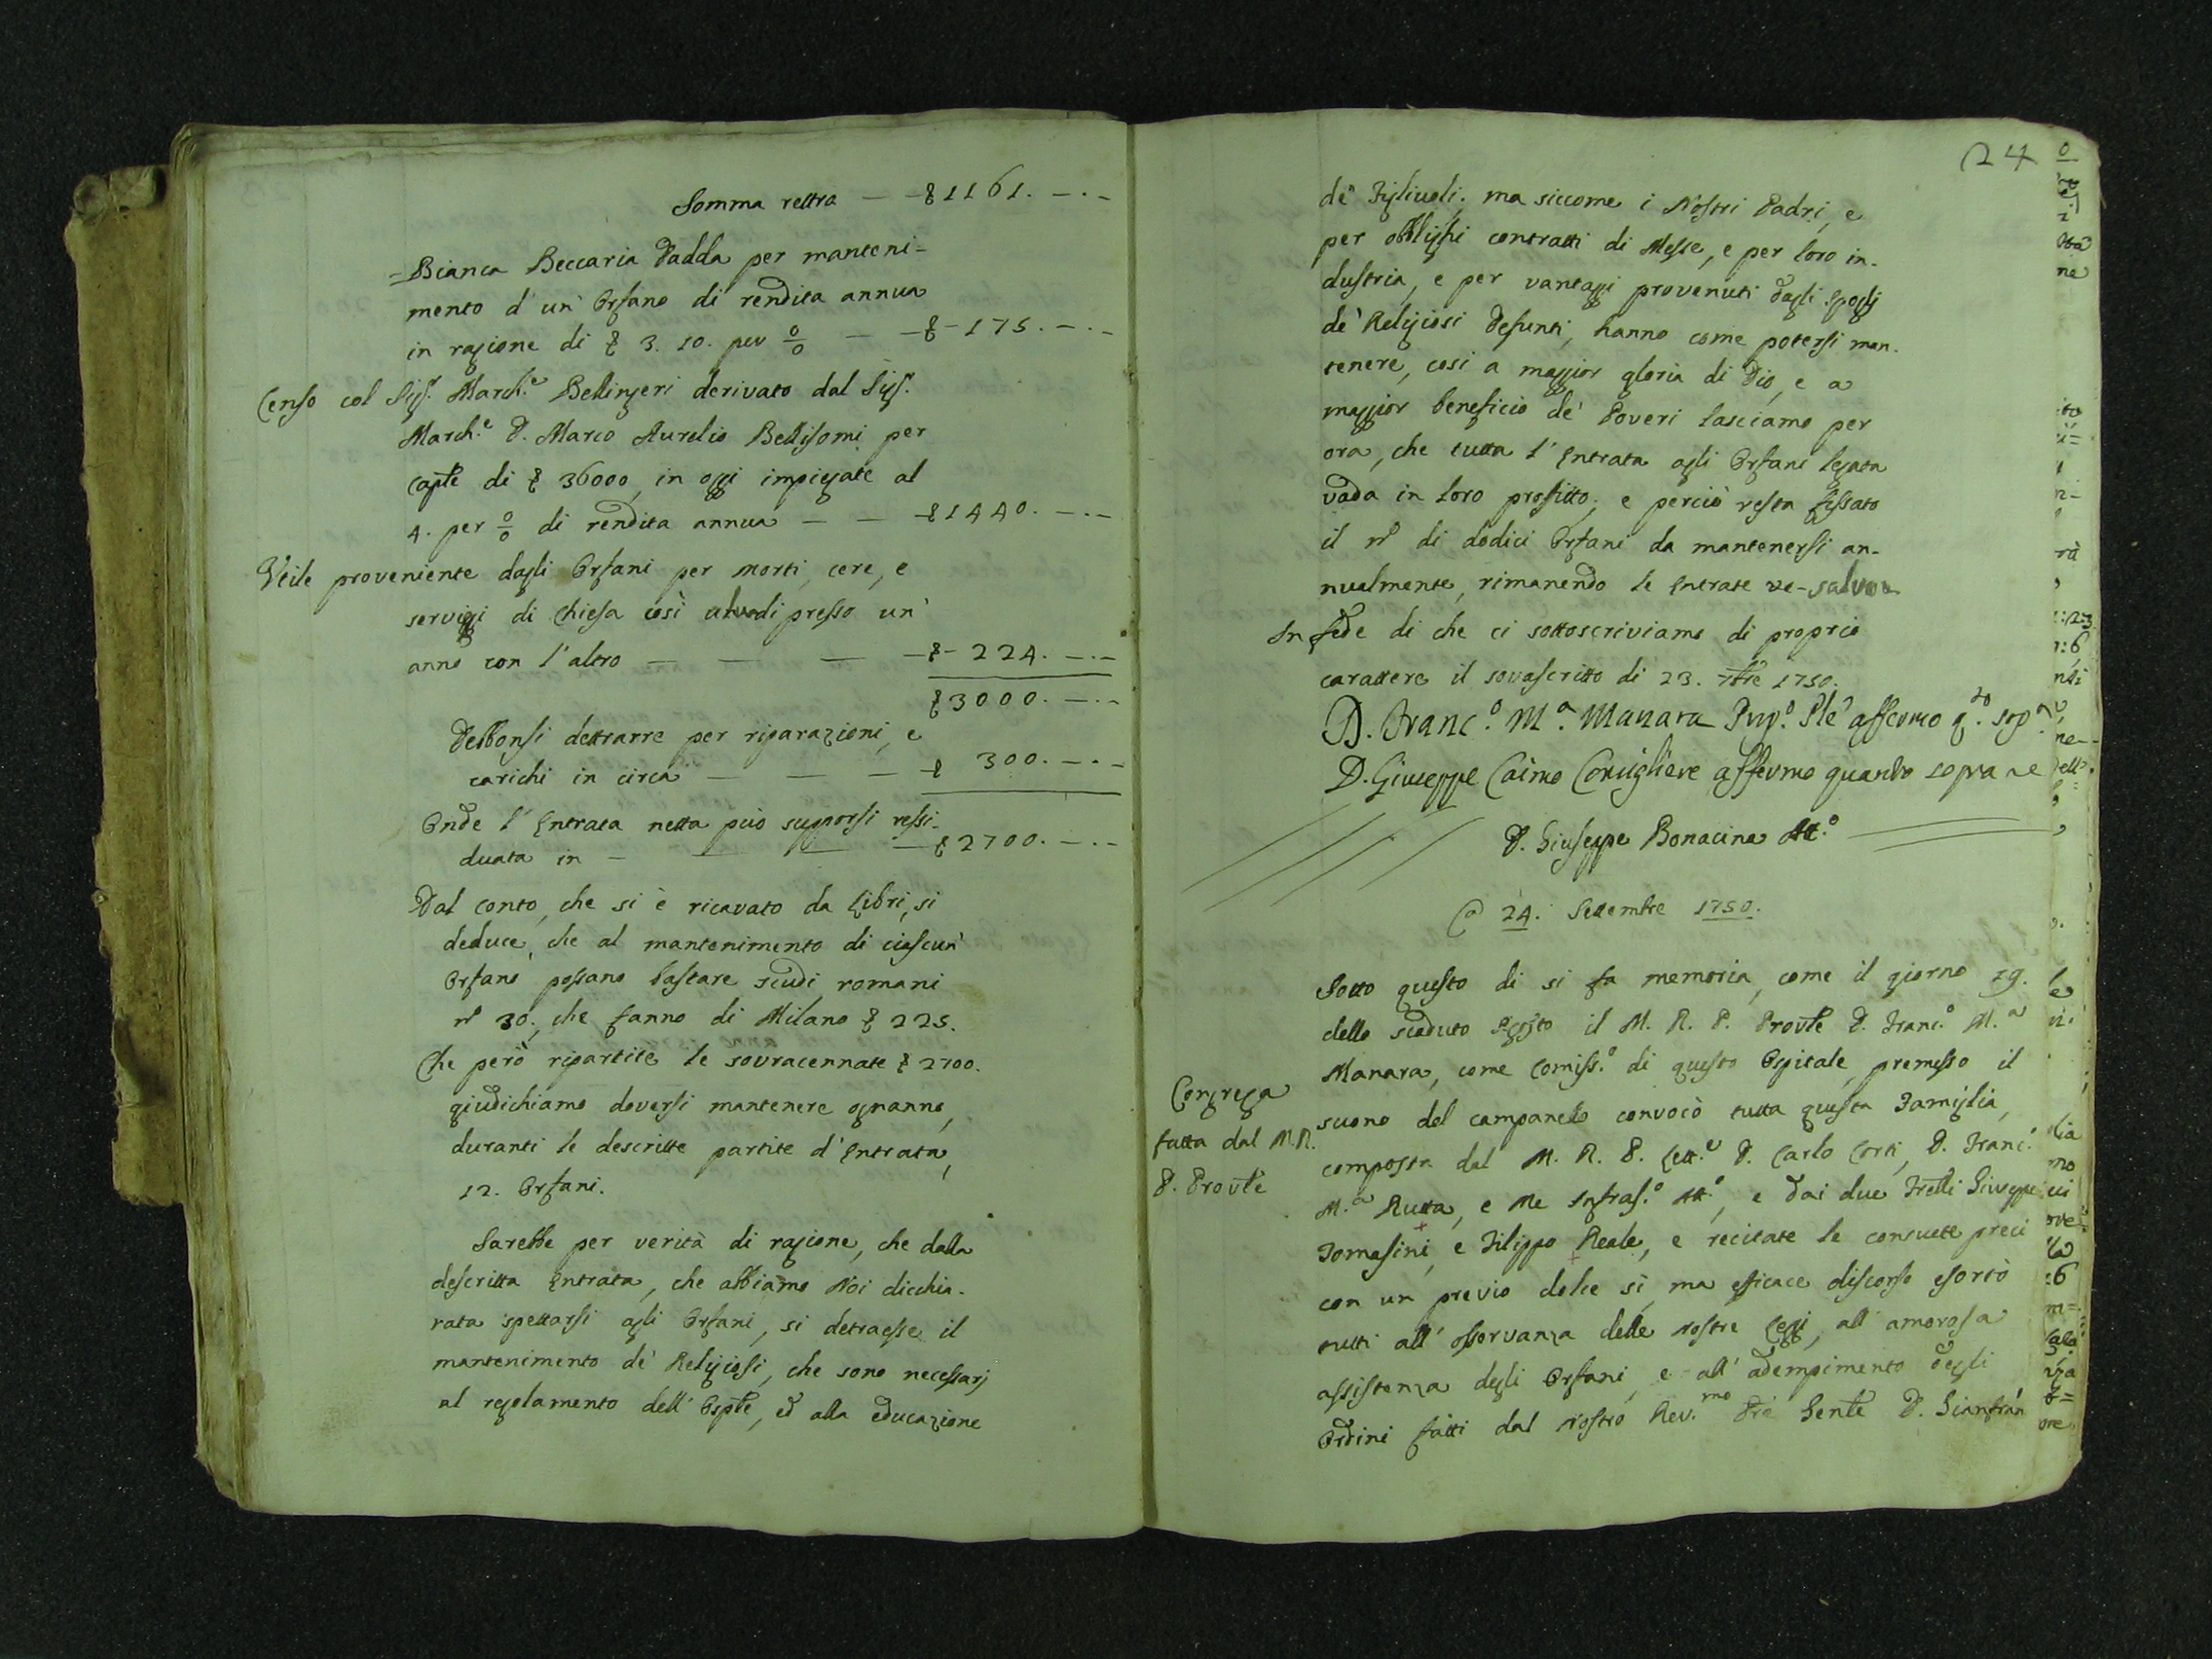 Somma rettra — — £ 1161. —.—
=Bianca Beccaria Dadda per manteni=
mento d' un' Orfano di rendita annua
in ragione di £ 3. 10. per 0/0 — — £ - 175. —.—
Censo col Sig.r March.e Bellingeri derivato dal Sig.r
March.e D. Marco Aurelio Bellisomi per
caple di £ 36000, in oggi impiegate al
4. per 0/0 di rendita annua — — £ 1440. —.—
Utile proveniente dagli Orfani per morti, cere, e
servigi di Chiesa così presso un'
anno con l' altro — — — £ - 224. —.—
£ 3000. —.—
Debbonsi dettrarre per riparazioni, e
carichi in circa — — — £ 300. —.—
Onde l' Entrata netta può supporsi ressi=
duata in — — — £ 2700. —.—
Dal conto, che si è ricavato da Libri, si
deduce, che al mantenimento di ciascun'
Orfano possano bastare scudi romani
n.o 30., che fanno di Milano £ 225.
Che però ripartite le sovracennate £ 2700.
giudichiamo doversi mantenere ognanno,
duranti le descritte partite d' Entrata,
12. Orfani.
Sarebbe per verità di ragione, che dalla
descritta Entrata, che abbiamo Noi dicchia-
rata spettarsi agli Orfani, si detraesse il
mantenimento de' Religiosi, che sono necessarj
al regolamento dell' Osple, ed alla educazione
24
de' Figliuoli; ma siccome i Nostri Padri, e
per obblighi contratti di Messe, e per loro in-
dustria, e per vantaggi provenuti dagli spoglj
de' Religiosi defunti, hanno come potersi man-
tenere, così a maggior gloria di Dio, e a
maggior beneficio de' Poveri lasciamo per
ora, che tutta l' Entrata agli Orfani legata
vada in loro profitto; e perciò resta fissato
il n.o di dodici Orfani da mantenersi an-
nualmente, rimanendo le Entrate ve-salvo
In fede di che ci sottoscriviamo di proprio
carattere il sovascritto di 23. 7bre 1750.
D. Franc.o M.a Manara Prep.o Ple affermo q.to sop.a
D. Giuseppe Caimo Consigliere affermo quanto sopra
D. Giuseppe Bonacina Att.o
24. Settembre 1750.
Sotto questo di si fa memoria, come il giorno 29.
dello scaduto Agosto il M. R. P. Provle D. Franc.o M.a
Manara, come Comiss.o di questo Ospitale, premesso il
Congrega
fatta dal M. R.
P. Provle
suono del campanelo convocò tutta questa Famiglia,
composta dal M. R. P. Lett.e D. Carlo Corti, D. Franc.o
M.a Rutta, e Me Infras.o Att.o, e dai due Frelli Giuseppe
Tomasini, e Filippo Reale, e recitate le consuete preci
con un previo dolce sì, ma efficace discorso esortò
tutti all' osservanza delle nostre Leggi, all' amorosa
assistenza degli Orfani, e all' adempimento degli
Ordini fatti dal Nostro Rev.mo Pre Genle D. Gianfran